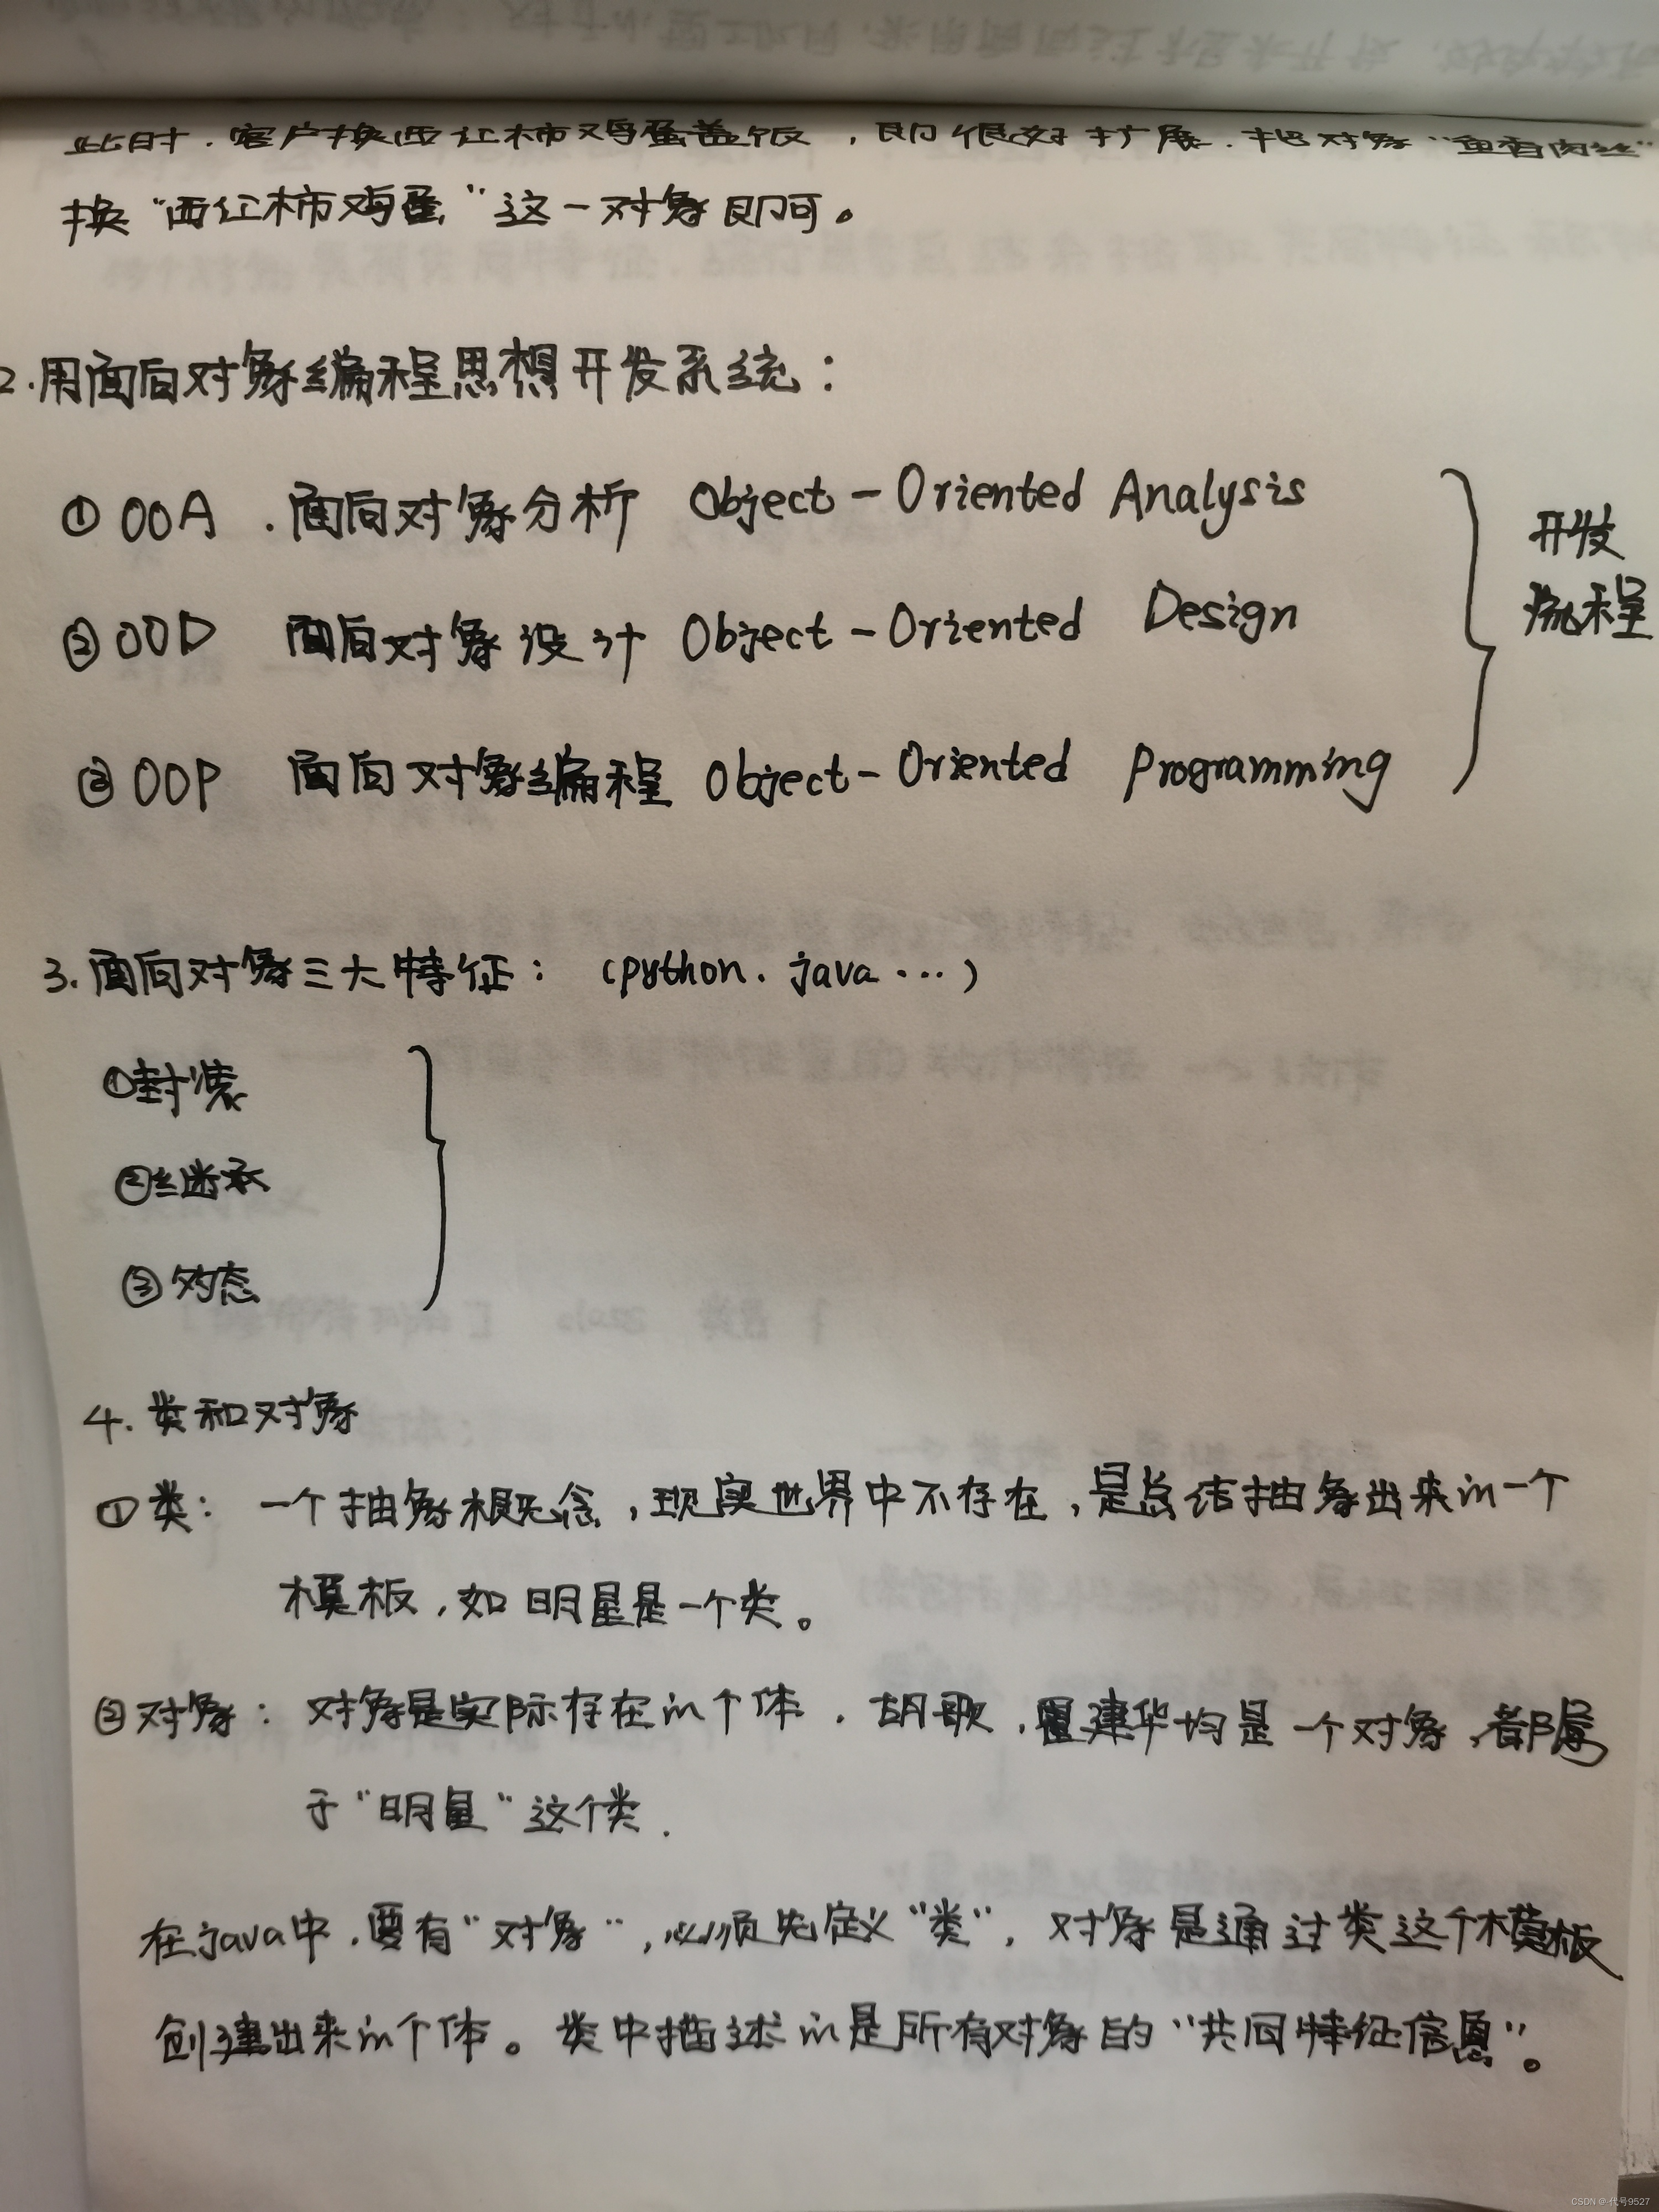 此时，客户换西红柿鸡蛋盖饭，即很好扩展，把对象“鱼香肉丝”
换“西红柿鸡蛋”这一对象即可。
2.用面向对象编程思想开发系统：
①OOA . 面向对象分析 Object-Oriented Analysis
②OOD 面向对象设计 Object-Oriented Design
③OOP 面向对象编程 Object-Oriented Programming
开发
流程
3.面向对象三大特征：（python. java ...）
①封装
②继承
③多态
4.类和对象
①类：一个抽象概念，现实世界中不存在，是总结抽象出来的一个
模板，如明星是一个类。
②对象：对象是实际存在的个体．胡歌，建华均是一个对象，都属
于“明星”这个类．
在java中，要有“对象”，必须先定义“类”，对象是通过类这个模板
创建出来的个体。类中描述的是所有对象的“共同特征信息”。
CSDN @代号9527